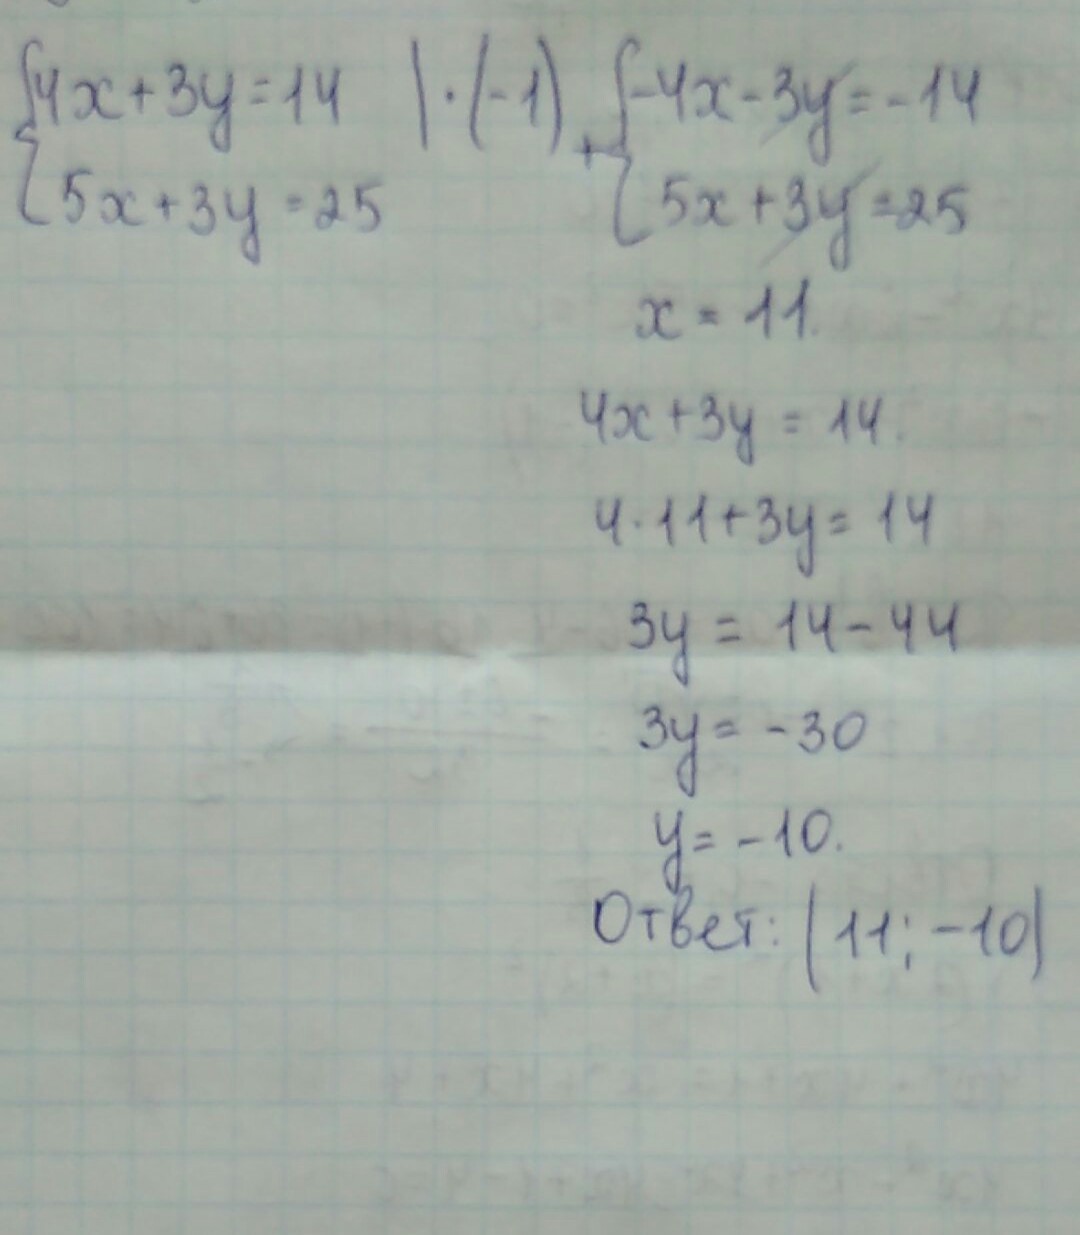 {4x+3y=14 |·(-1) + {-4x-3y=-14
{5x+3y=25 {5x+3y=25
x=11.
4x+3y=14.
4·11+3y=14
3y=14-44
3y=-30
y=-10.
Ответ: (11; -10)